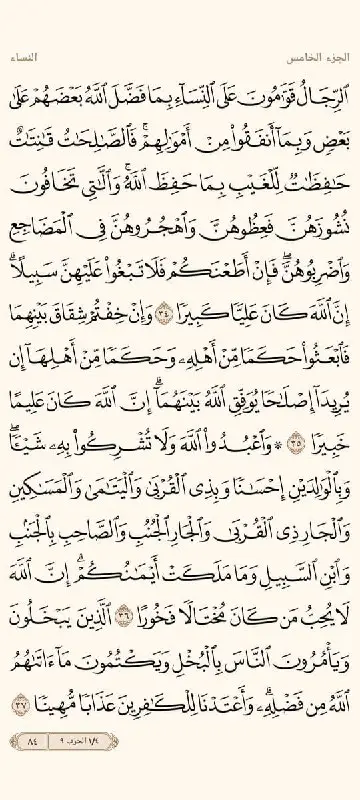 الجزء الخامس
النساء
ٱلرِّجَالُ قَوَّٰمُونَ عَلَى ٱلنِّسَآءِ بِمَا فَضَّلَ ٱللَّهُ بَعْضَهُمْ عَلَىٰ
بَعْضٍ وَبِمَآ أَنفَقُوا۟ مِنْ أَمْوَٰلِهِمْ ۚ فَٱلصَّٰلِحَٰتُ قَٰنِتَٰتٌ
حَٰفِظَٰتٌ لِّلْغَيْبِ بِمَا حَفِظَ ٱللَّهُ ۚ وَٱلَّٰتِى تَخَافُونَ
نُشُوزَهُنَّ فَعِظُوهُنَّ وَٱهْجُرُوهُنَّ فِى ٱلْمَضَاجِعِ
وَٱضْرِبُوهُنَّ ۖ فَإِنْ أَطَعْنَكُمْ فَلَا تَبْغُوا۟ عَلَيْهِنَّ سَبِيلًا ۗ
إِنَّ ٱللَّهَ كَانَ عَلِيًّا كَبِيرًا ٣٤ وَإِنْ خِفْتُمْ شِقَاقَ بَيْنِهِمَا
فَٱبْعَثُوا۟ حَكَمًا مِّنْ أَهْلِهِۦ وَحَكَمًا مِّنْ أَهْلِهَآ إِن
يُرِيدَآ إِصْلَٰحًا يُوَفِّقِ ٱللَّهُ بَيْنَهُمَآ ۗ إِنَّ ٱللَّهَ كَانَ عَلِيمًا
خَبِيرًا ٣٥ ۞ وَٱعْبُدُوا۟ ٱللَّهَ وَلَا تُشْرِكُوا۟ بِهِۦ شَيْـًٔا ۖ
وَبِٱلْوَٰلِدَيْنِ إِحْسَٰنًا وَبِذِى ٱلْقُرْبَىٰ وَٱلْيَتَٰمَىٰ وَٱلْمَسَٰكِينِ
وَٱلْجَارِ ذِى ٱلْقُرْبَىٰ وَٱلْجَارِ ٱلْجُنُبِ وَٱلصَّاحِبِ بِٱلْجَنۢبِ
وَٱبْنِ ٱلسَّبِيلِ وَمَا مَلَكَتْ أَيْمَٰنُكُمْ ۗ إِنَّ ٱللَّهَ
لَا يُحِبُّ مَن كَانَ مُخْتَالًا فَخُورًا ٣٦ ٱلَّذِينَ يَبْخَلُونَ
وَيَأْمُرُونَ ٱلنَّاسَ بِٱلْبُخْلِ وَيَكْتُمُونَ مَآ ءَاتَىٰهُمُ
ٱللَّهُ مِن فَضْلِهِۦ ۗ وَأَعْتَدْنَا لِلْكَٰفِرِينَ عَذَابًا مُّهِينًا ٣٧
١/٤ الحزب ٩
٨٤